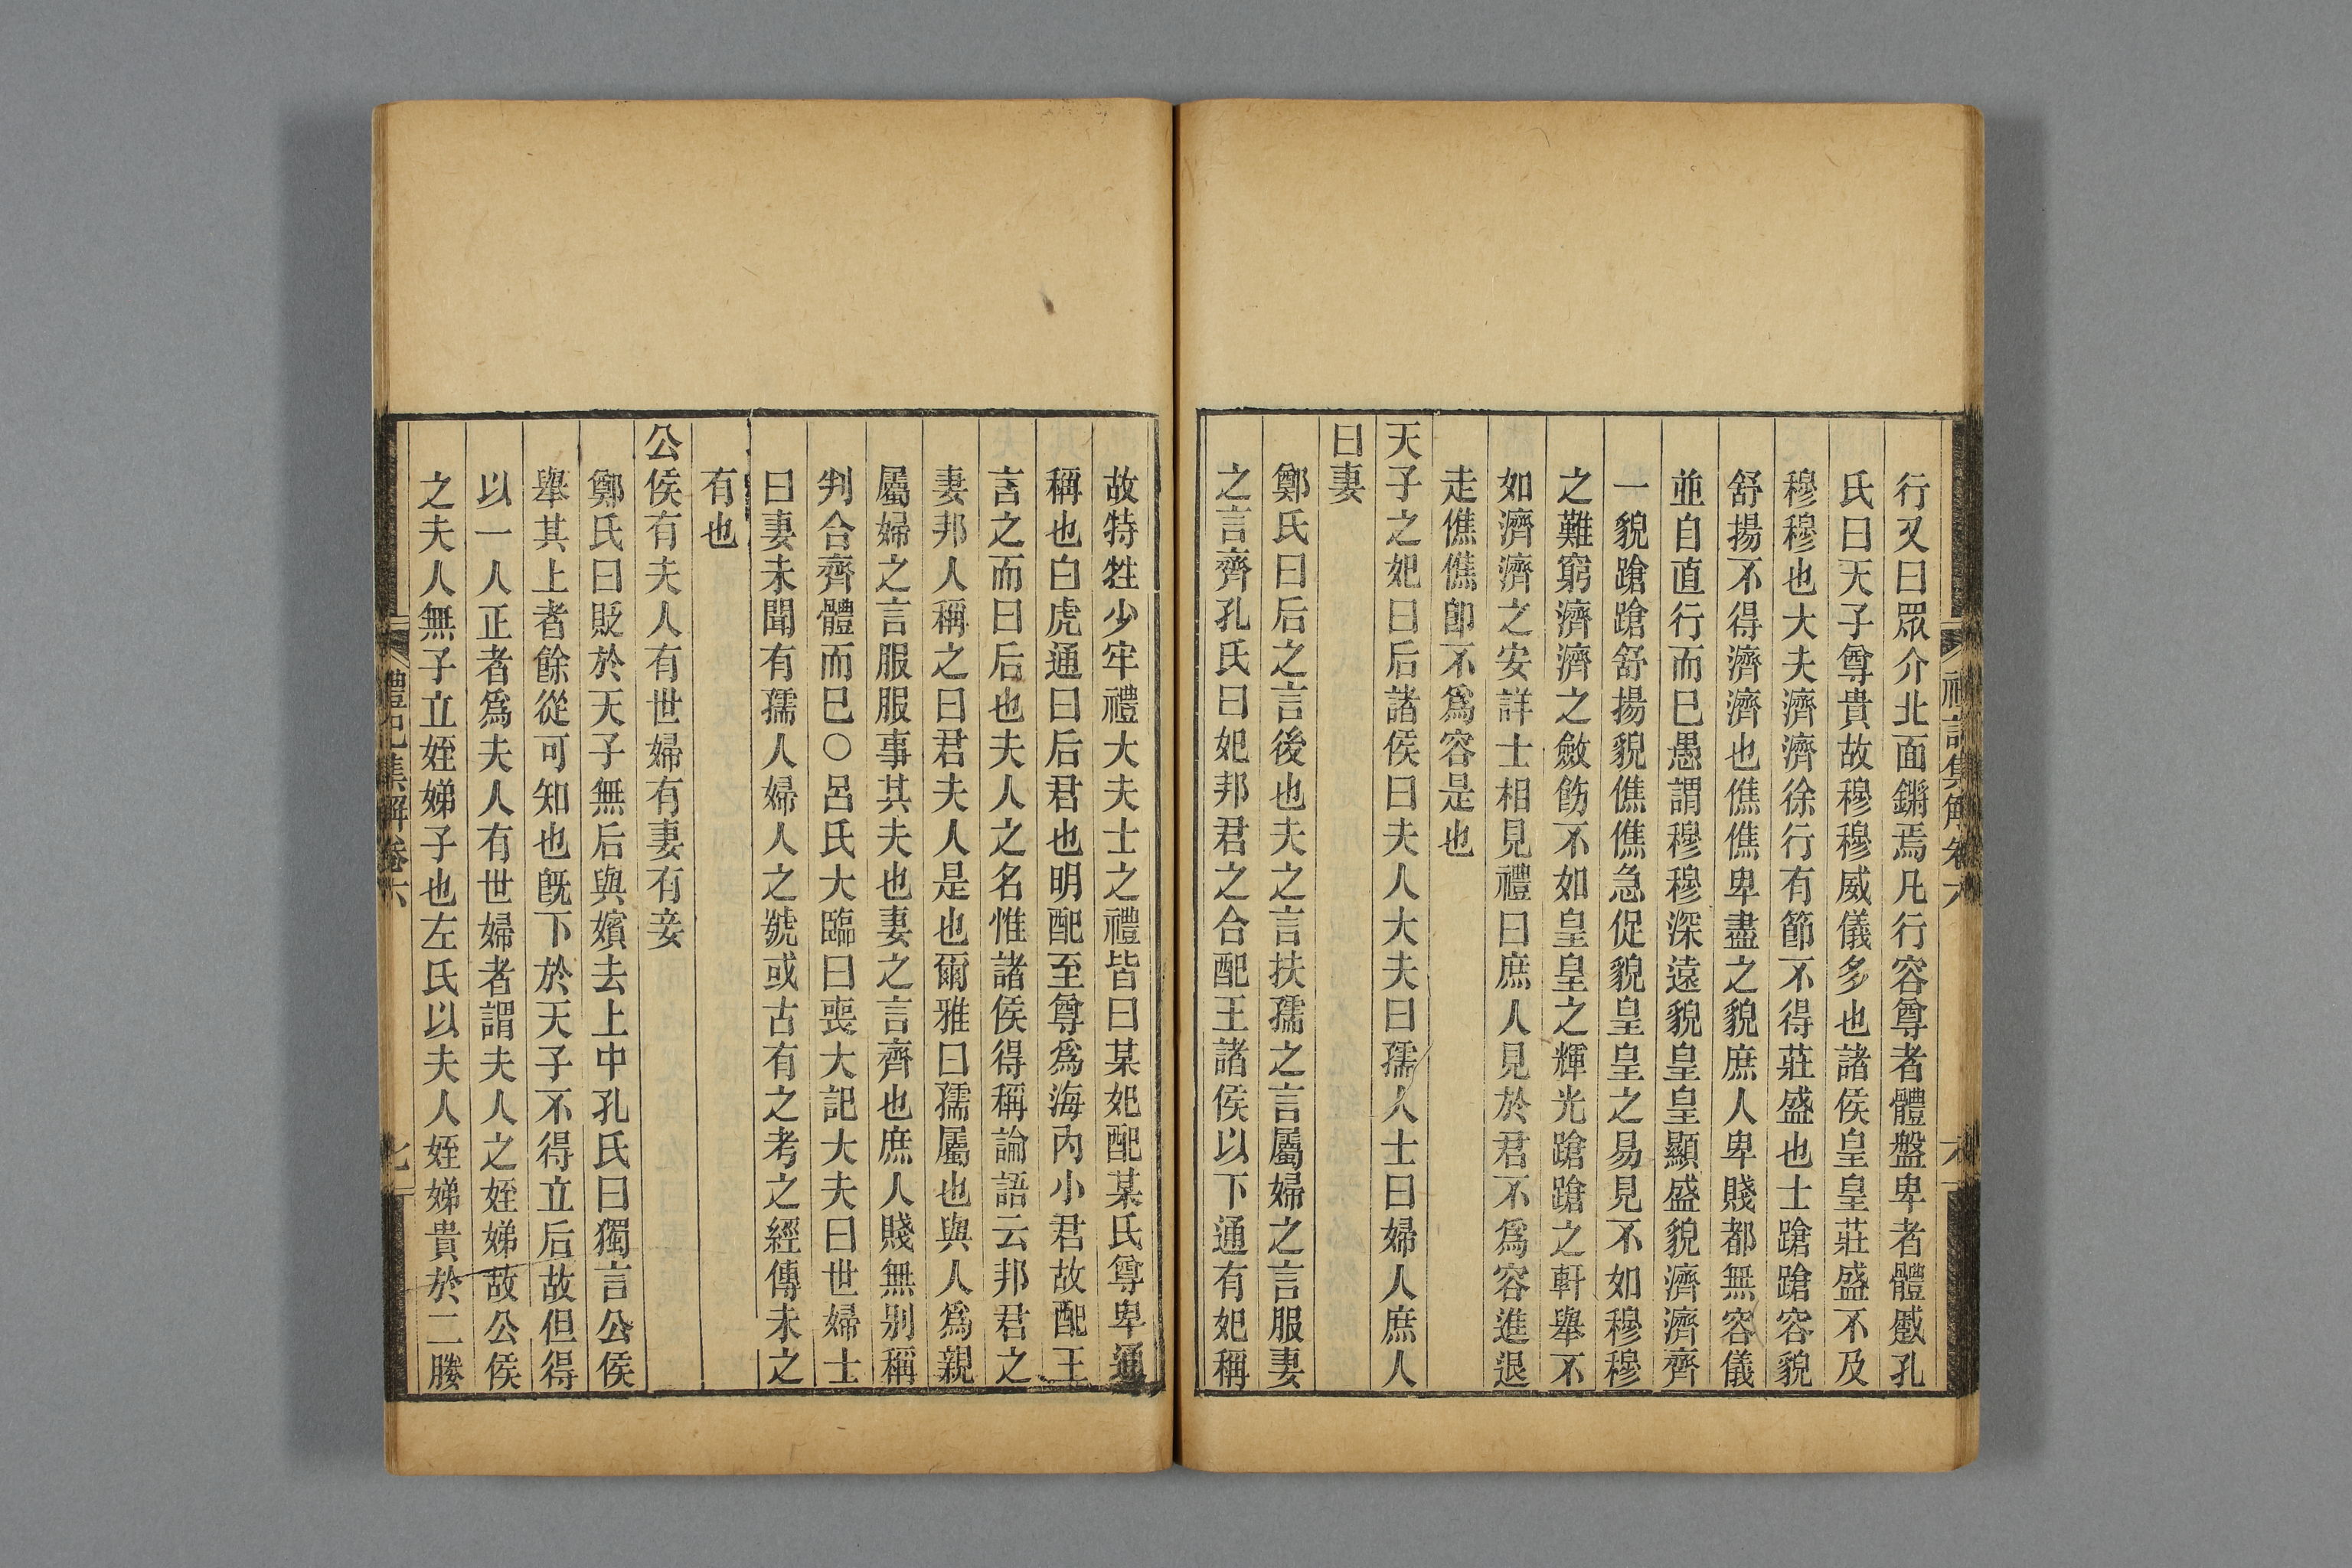 行又曰眾介北面鏘焉凡行容尊者體盤卑者體蹙孔
氏曰天子尊貴故穆穆威儀多也諸侯皇皇莊盛不及
穆穆也大夫濟濟徐行有節不得莊盛也士蹌蹌容貌
舒揚不得濟濟也僬僬卑盡之貌庶人卑賤都無容儀
並自直行而已愚謂穆穆深遠貌皇皇顯盛貌濟濟齊
一貌蹌蹌舒揚貌僬僬急促貌皇皇之易見不如穆穆
之難窮濟濟之斂飭不如皇皇之輝光蹌蹌之軒舉不
如濟濟之安詳士相見禮曰庶人見於君不爲容進退
走僬僬卽不爲容是也
天子之妃曰后諸侯曰夫人大夫曰孺人士曰婦人庶人
曰妻
鄭氏曰后之言後也夫之言扶孺之言屬婦之言服妻
之言齊孔氏曰妃邦君之合配王諸侯以下通有妃稱
禮記集解卷六
六
故特牲少牢禮大夫士之禮皆曰某妃配某氏尊卑通
稱也白虎通曰后君也明配至尊爲海內小君故配王
言之而曰后也夫人之名惟諸侯得稱論語云邦君之
妻邦人稱之曰君夫人是也爾雅曰孺屬也與人爲親
屬婦之言服服事其夫也妻之言齊也庶人賤無別稱
判合齊體而已○呂氏大臨曰喪大記大夫曰世婦士
曰妻未聞有孺人婦人之號或古有之考之經傳未之
有也
公侯有夫人有世婦有妻有妾
鄭氏曰貶於天子無后與嬪去上中孔氏曰獨言公侯
舉其上者餘從可知也旣下於天子不得立后故但得
以一人正者爲夫人有世婦者謂夫人之姪娣故公侯
之夫人無子立姪娣子也左氏以夫人姪娣貴於二媵
禮記集解卷六
七